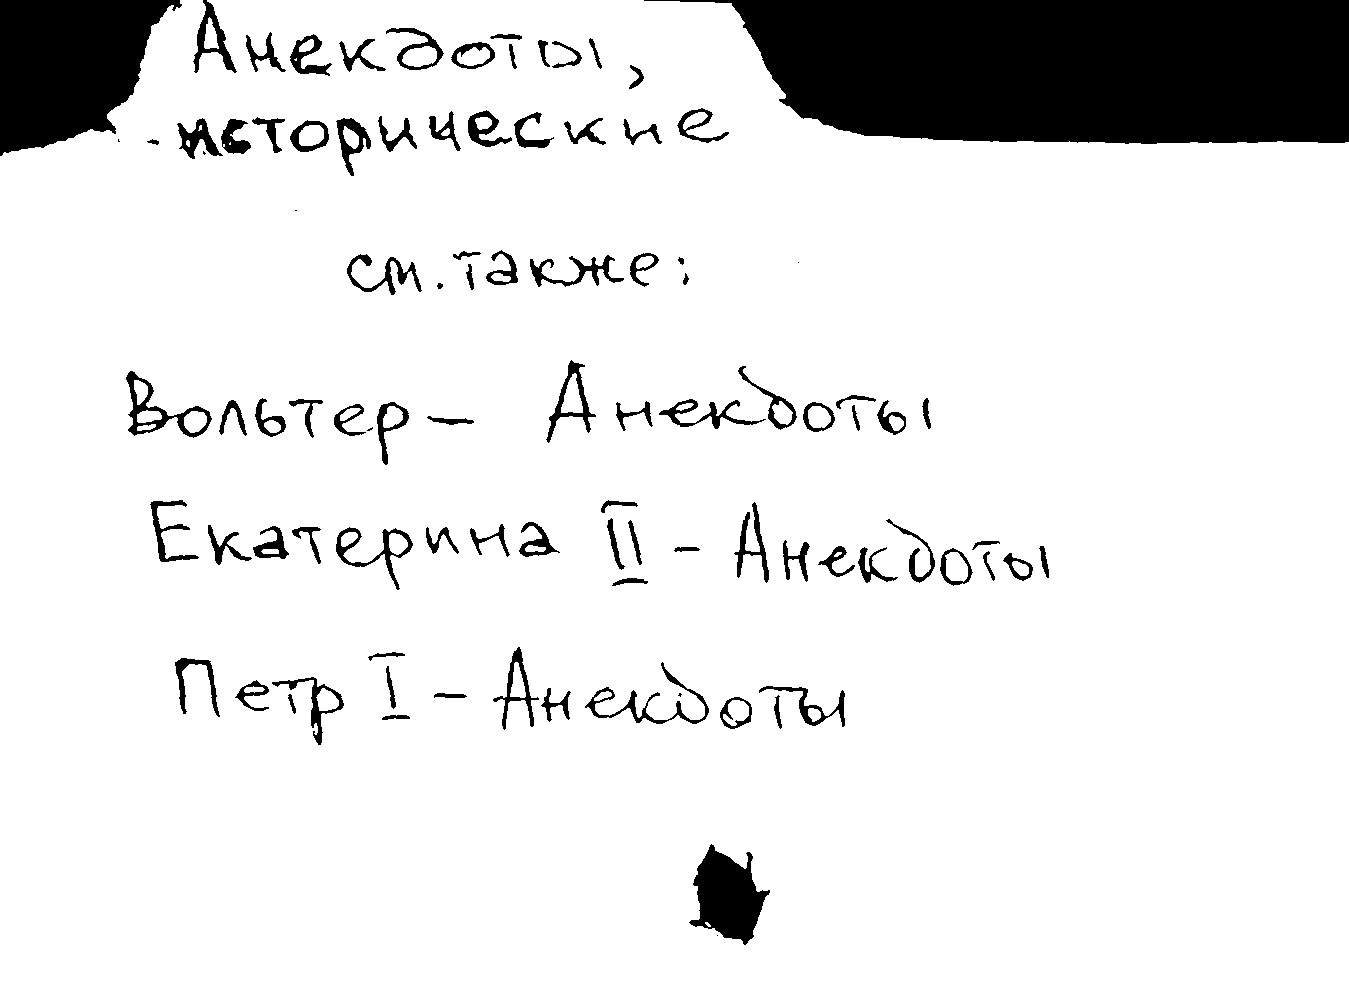 Анекдоты,
исторические
см. также:
Вольтер - Анекдоты
Екатерина II - Анекдоты
Петр I - Анекдоты